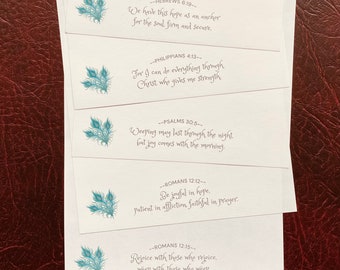 ~HEBREWS 6:19~
We have this hope as an anchor
for the soul, firm and secure.
~PHILIPPIANS 4:13~
For I can do everything through
Christ who gives me strength.
~PSALMS 30:5~
Weeping may last through the night,
but joy comes with the morning.
~ROMANS 12:12~
Be joyful in hope,
patient in affliction, faithful in prayer.
~ROMANS 12:15~
Rejoice with those who rejoice,